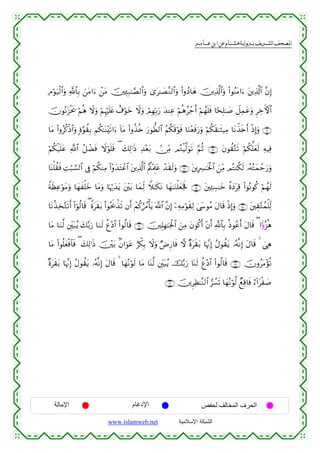 المصحف الشريف برواية هشام عن ابن عامر
إِنَّ ٱلَّذِينَ ءَامَنُوا۟ وَٱلَّذِينَ هَادُوا۟ وَٱلنَّصَـٰرَىٰ وَٱلصَّـٰبِـِٔينَ مَنْ ءَامَنَ بِٱللَّهِ وَٱلْيَوْمِ
ٱلْءَاخِرِ وَعَمِلَ صَـٰلِحًا فَلَهُمْ أَجْرُهُمْ عِندَ رَبِّهِمْ وَلَا خَوْفٌ عَلَيْهِمْ وَلَا هُمْ يَحْزَنُونَ
وَإِذْ أَخَذْنَا مِيثَـٰقَكُمْ وَرَفَعْنَا فَوْقَكُمُ ٱلطُّورَ خُذُوا۟ مَآ ءَاتَيْنَـٰكُم بِقُوَّةٍ وَٱذْكُرُوا۟ مَا
فِيهِ لَعَلَّكُمْ تَتَّقُونَ ثُمَّ تَوَلَّيْتُم مِّنۢ بَعْدِ ذَٰلِكَ فَلَوْلَا فَضْلُ ٱللَّهِ عَلَيْكُمْ
وَرَحْمَتُهُۥ لَكُنتُم مِّنَ ٱلْخَـٰسِرِينَ وَلَقَدْ عَلِمْتُمُ ٱلَّذِينَ ٱعْتَدَوْا۟ مِنكُمْ فِى ٱلسَّبْتِ فَقُلْنَا
لَهُمْ كُونُوا۟ قِرَدَةً خَـٰسِـِٔينَ فَجَعَلْنَـٰهَا نَكَـٰلًا لِّمَا بَيْنَ يَدَيْهَا وَمَا خَلْفَهَا وَمَوْعِظَةً
لِّلْمُتَّقِينَ وَإِذْ قَالَ مُوسَىٰ لِقَوْمِهِۦٓ إِنَّ ٱللَّهَ يَأْمُرُكُمْ أَن تَذْبَحُوا۟ بَقَرَةً قَالُوٓا۟ أَتَتَّخِذُنَا
هُزُؤًا قَالَ أَعُوذُ بِٱللَّهِ أَنْ أَكُونَ مِنَ ٱلْجَـٰهِلِينَ قَالُوا۟ ٱدْعُ لَنَا رَبَّكَ يُبَيِّن لَّنَا مَا
هِىَ قَالَ إِنَّهُۥ يَقُولُ إِنَّهَا بَقَرَةٌ لَّا فَارِضٌ وَلَا بِكْرٌ عَوَانٌۢ بَيْنَ ذَٰلِكَ فَٱفْعَلُوا۟ مَا
تُؤْمَرُونَ قَالُوا۟ ٱدْعُ لَنَا رَبَّكَ يُبَيِّن لَّنَا مَا لَوْنُهَا قَالَ إِنَّهُۥ يَقُولُ إِنَّهَا بَقَرَةٌ
صَفْرَآءُ فَاقِعٌ لَّوْنُهَا تَسُرُّ ٱلنَّـٰظِرِينَ
الحرف المخالف لحفص الإدغام الإمالة
الشبكة الإسلامية www.islamweb.net